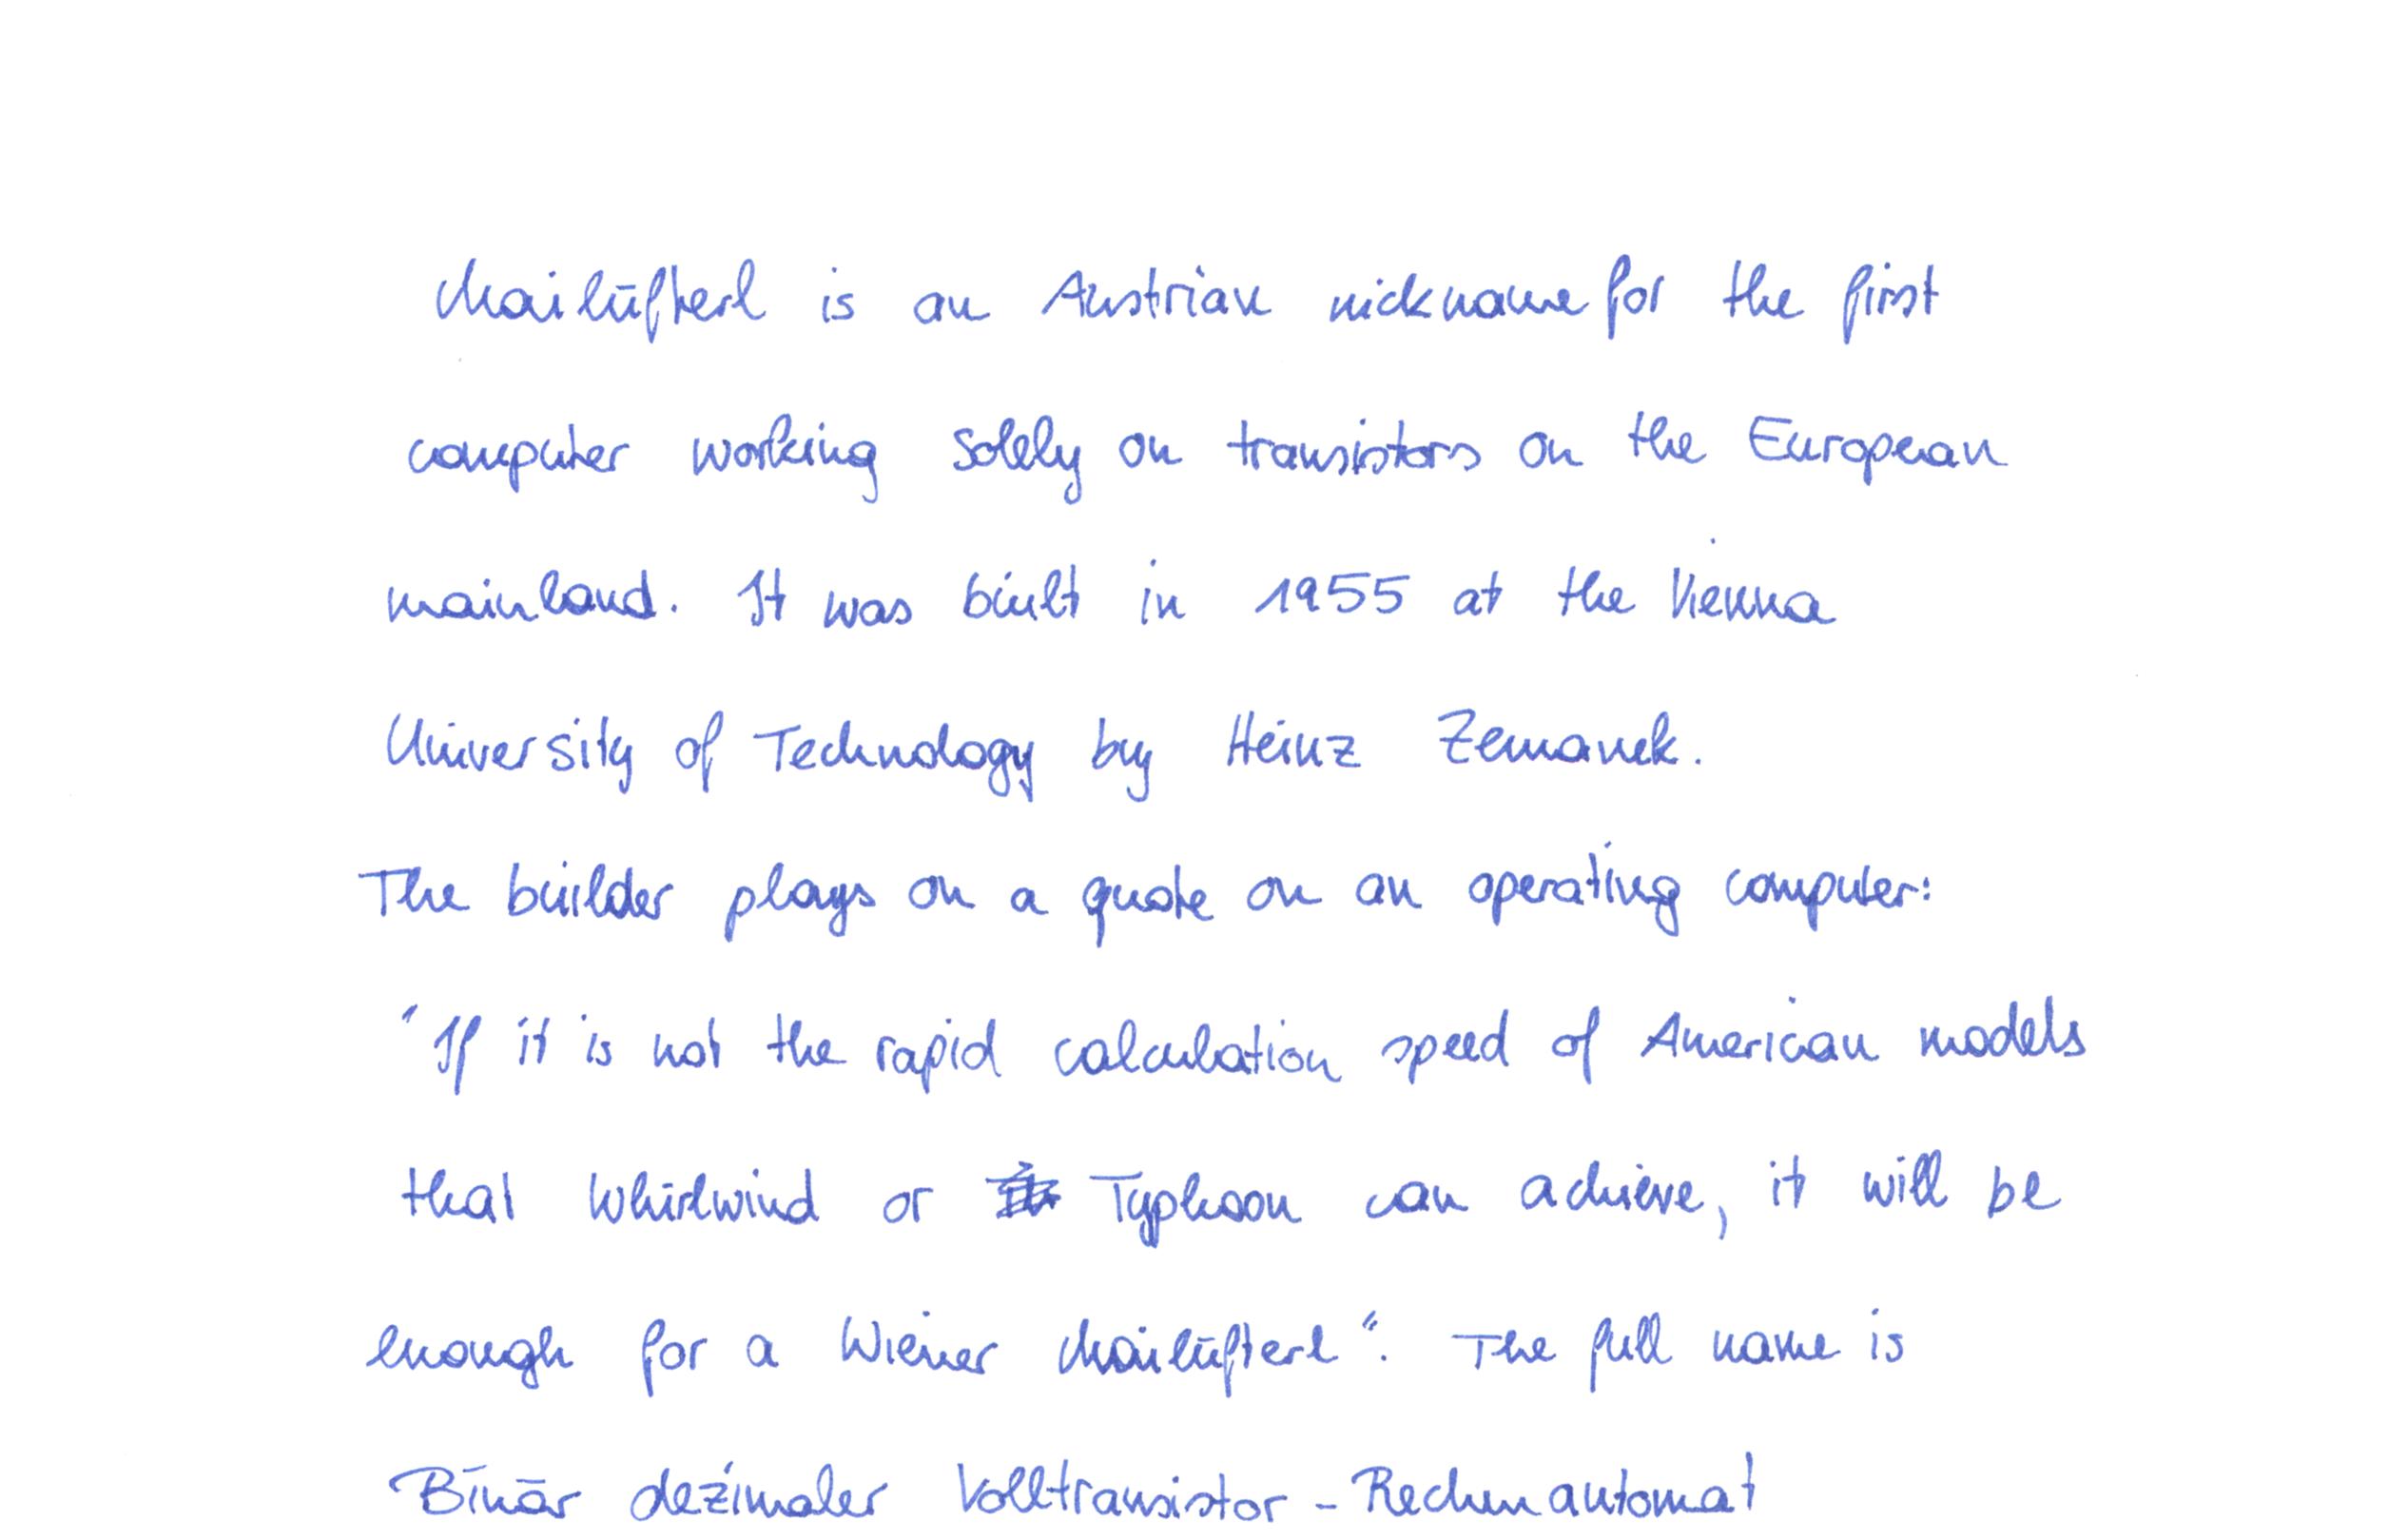 Mailüfterl is an Austrian nickname for the first
computer working solely on transistors on the European
mainland. It was built in 1955 at the Vienna
University of Technology by Heinz Zemanek.
The builder plays on a quote on an operating computer:
"If it is not the rapid calculation speed of American models
that Whirlwind or Typhoon can achieve, it will be
enough for a Wiener Mailüfterl". The full name is
Binär dezimaler Volltransistor - Rechenautomat